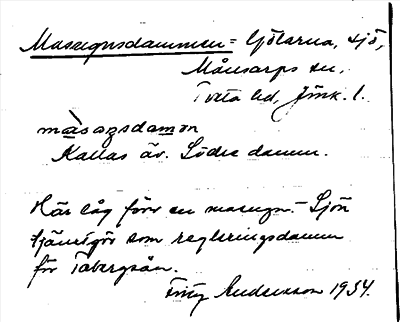 Masugnsdammen = Sjötarna, sjö,
Månsarps sn,
Tveta hd, Jönk. l.
màsogsdamon
Kallas äv. Södra damm.
Här låg förr en masugn. - Sjön
tjänstgör som regleringsdamm
för Tabergsån.
Andersson 1934.